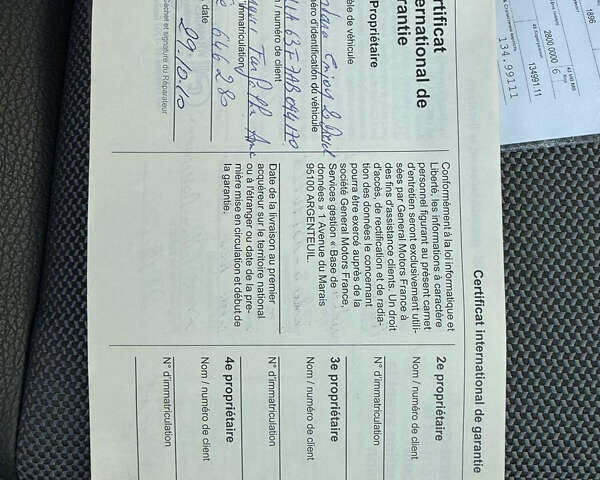 Certificat international de garantie
Certificat
international de
garantie
Propriétaire
èle de véhicule
éro d'identification du véhicule
m / numéro de client
immatriculation
date
29.10.10
Cachet et signature du Réparateur
Conformément à la loi informatique et
Liberté, les informations à caractère
personnel figurant au présent carnet
d'entretien seront exclusivement utili-
sées par General Motors France à
des fins d'assistance clients. Un droit
d'accès, de rectification et de radia-
tion des données le concernant
pourra être exercé auprès de la
société General Motors France,
Services gestion « Base de
données » 1 Avenue du Marais
95100 ARGENTEUIL.
Date de la livraison au premier
acquéreur sur le territoire national
ou à l'étranger ou date de la pre-
mière mise en circulation et début de
la garantie.
2e propriétaire
Nom / numéro de client
N° d'immatriculation
3e propriétaire
Nom / numéro de client
N° d'immatriculation
4e propriétaire
Nom / numéro de client
N° d'immatriculation
1896
2800.0000
6
134991.11
134.99111